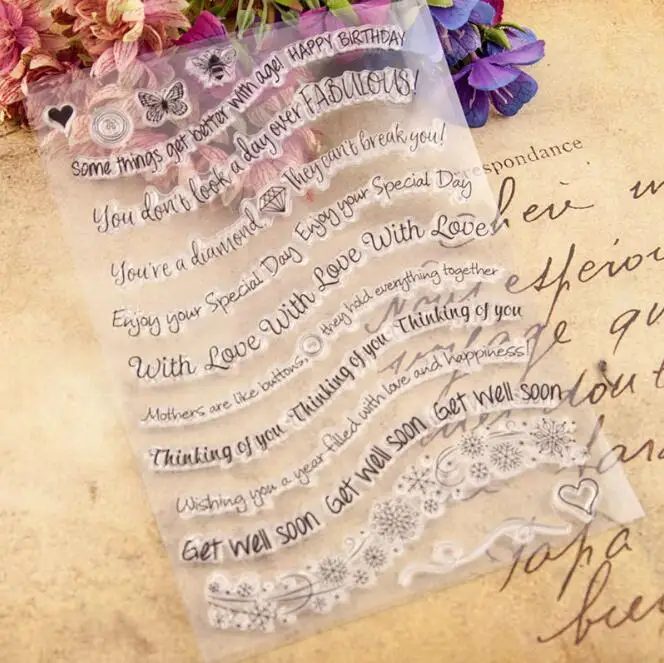 Some things get better with age! HAPPY BIRTHDAY
You don't look a day over FABULOUS!
You're a diamond They can't break you!
Enjoy your Special Day Enjoy your Special Day
With Love With Love With Love With Love
Mothers are like buttons, they hold everything together
Thinking of you Thinking of you Thinking of you
Wishing you a year filled with love and happiness!
Get well soon Get well soon Get well soon
respondance